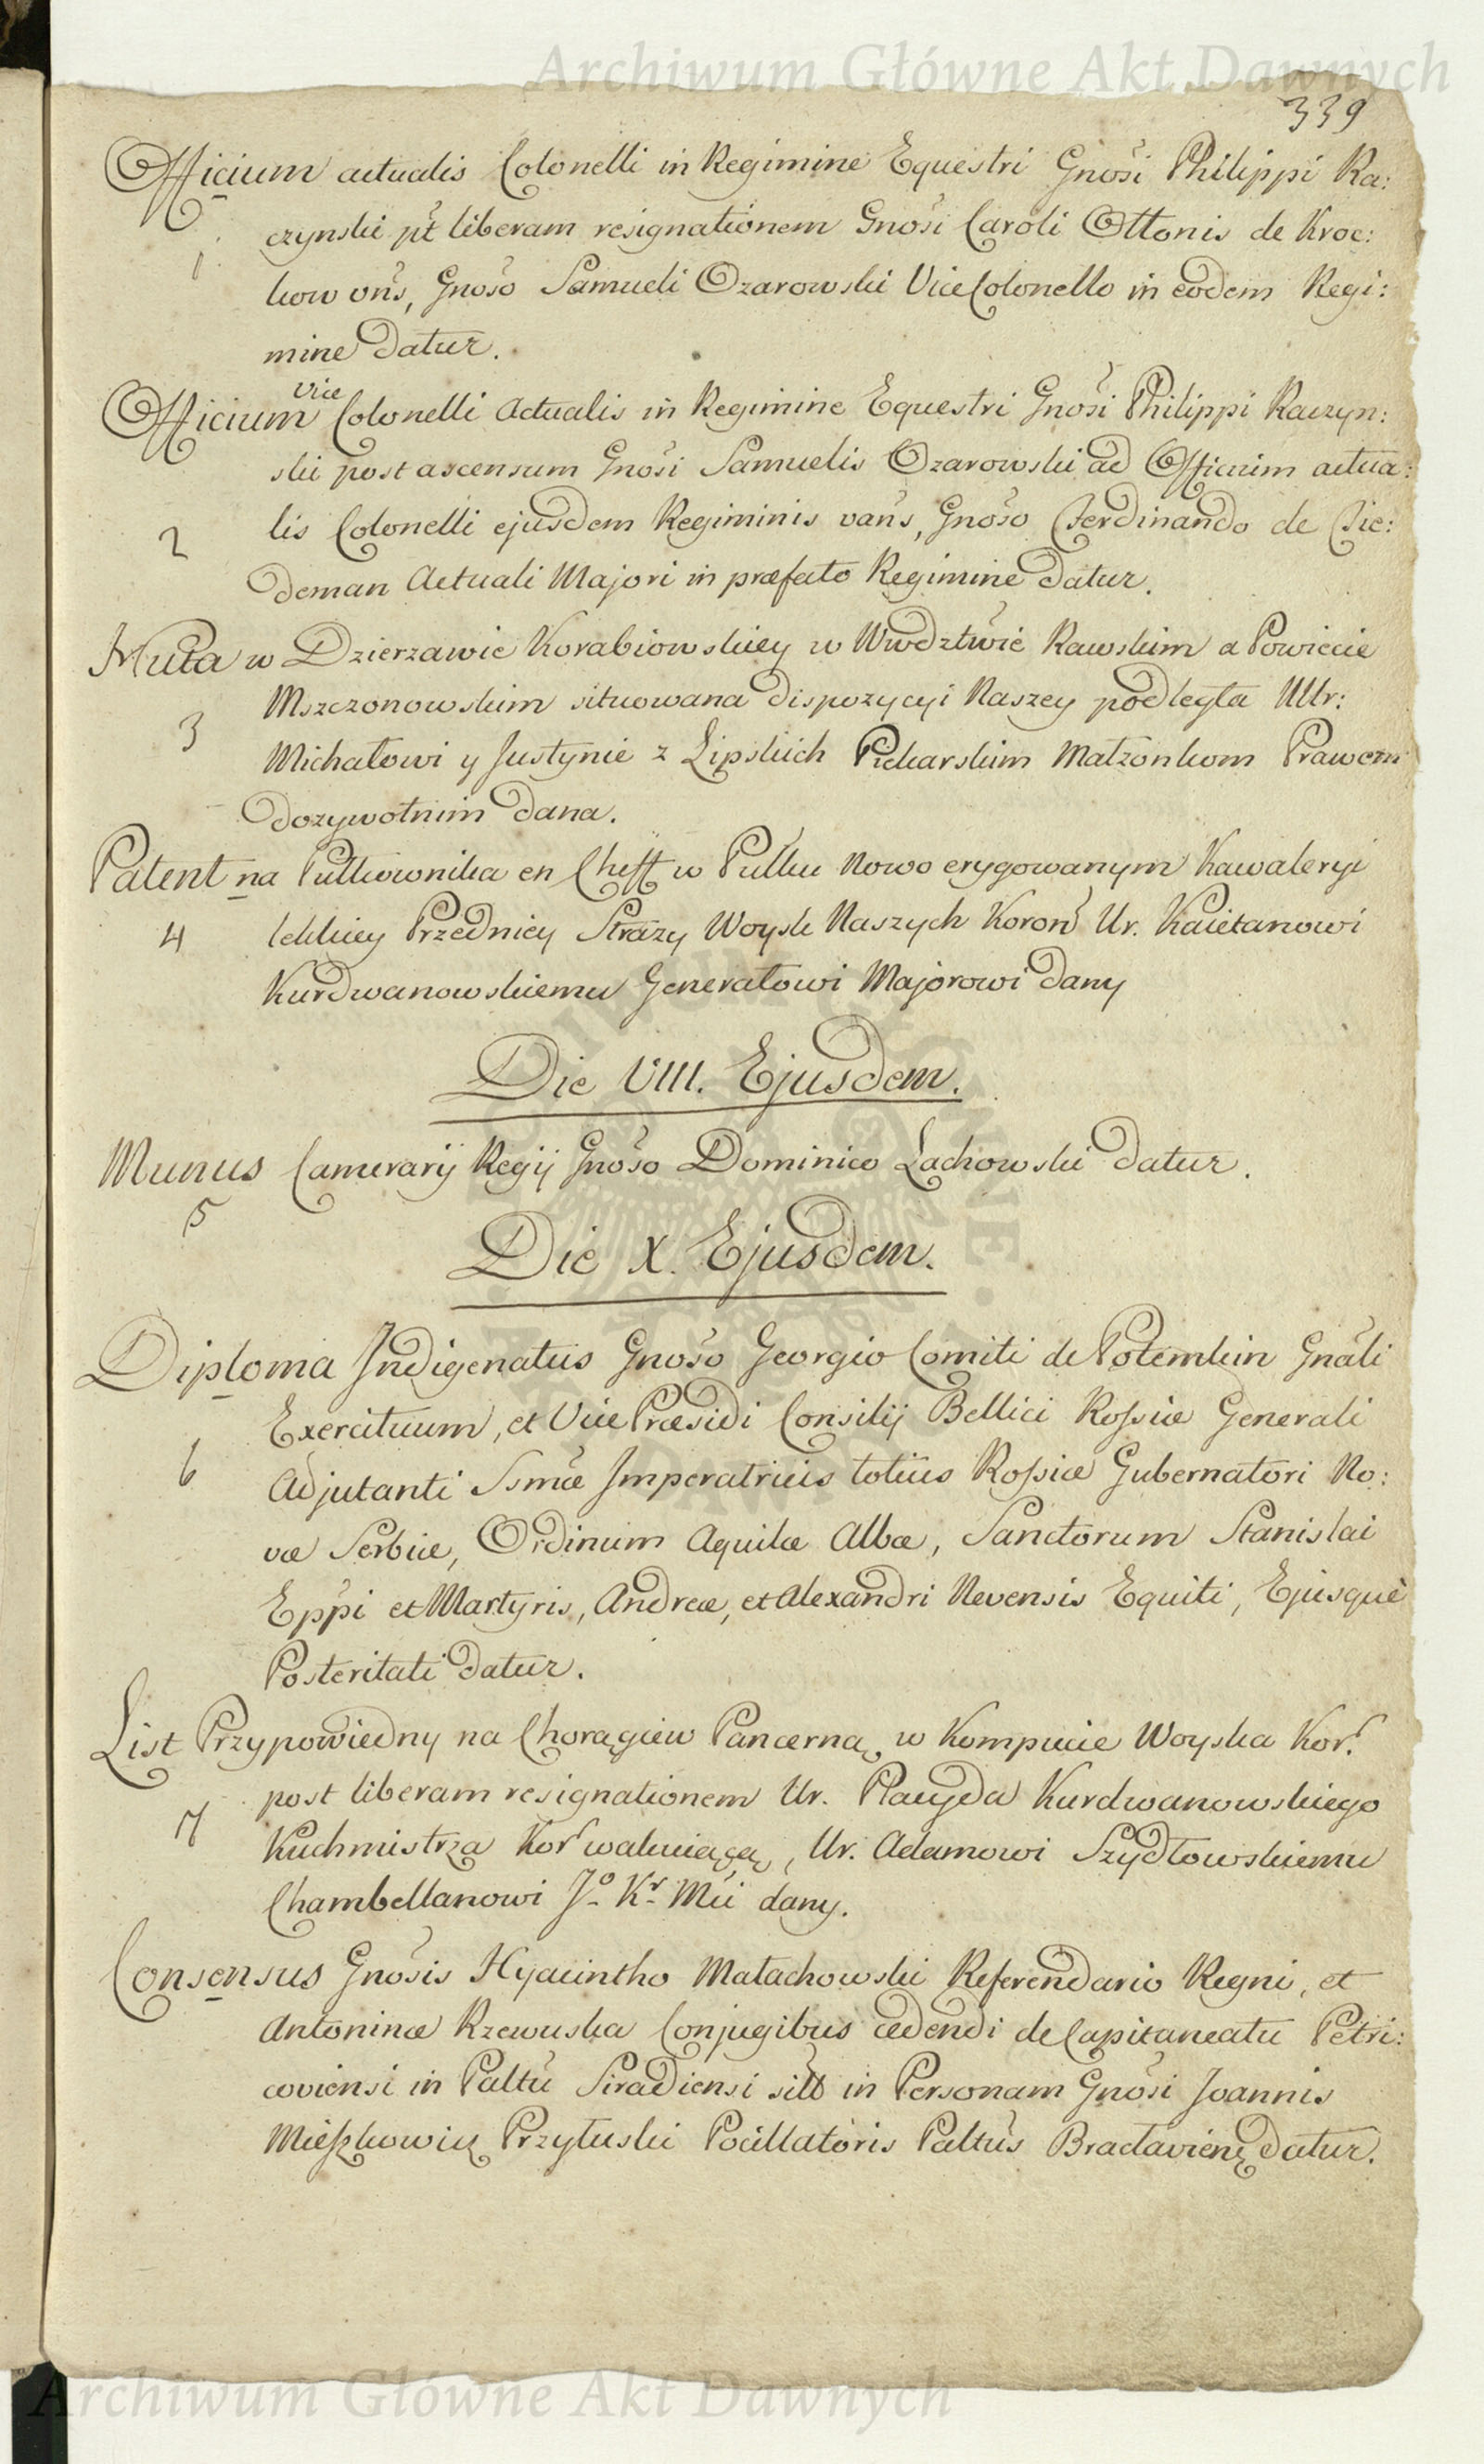 Archiwum Główne Akt Dawnych
339
Officium actualis Colonelli in Regimine Equestri Gnosi Philippi Ra:
czynski pt liberam resignationem Gnosi Caroli Ottonis de Kroc:
1
kow vns, Gnoso Samueli Ozarowski ViceColonello in eodem Regi:
mine datur.
vice
Officium Colonelli Actualis in Regimine Equestri Gnosi Philippi Raczyn:
ski post ascensum Gnosi Samuelis Ozarowski ad Officium actua:
lis Colonelli ejusdem Regiminis vans, Gnoso Ferdinando de Tie:
2
deman Actuali Majori in præfato Regimine datur.
Huta w Dzierzawie Korabiowskiey w Wwdztwie Rawskim a Powiecie
Mszczonowskim situowana dispozycyi Naszey podległa Ur:
3
Michałowi y Justynie z Lipskich Piekarskim Małzonkom Prawem
dozywotnim dana.
Patent na Pułkownika en Cheff w Pułku Nowo erygowanym Kawaleryi
4
lekkiey Przedniey Strazy Woysk Naszych Koron Ur. Kaietanowi
Kurdwanowskiemu Generałowi Majorowi dany
Die VIII. Ejusdem.
Munus Camerarij Regij Gnoso Dominico Lachowski datur.
5
Die X. Ejusdem.
Diploma Indigenatus Gnoso Georgio Comiti de Potemkin Gnali
Exercituum, et Vice Præsidi Consilij Bellici Rossiæ Generali
6
Adjutanti Ssmæ Imperatricis totius Rossiæ Gubernatori No:
væ Serbiæ, Ordinum Aquilæ Albæ, Sanctorum Stanislai
Eppi et Martyris, Andreæ, et Alexandri Nevensis Equiti, Ejusque
Posteritati datur.
List Przypowiedny na Chorągiew Pancerną w Kompucie Woyska Kor.
post liberam resignationem Ur. Kurdwanowskiego
7
Kuchmistrza Kor wakuiącą, Ur. Adamowi Szydłowskiemu
Chambellanowi Jo Kr Mci dany.
Consensus Gnosis Hyacintho Małachowski Referendario Regni, et
Antoninæ Rzewuska Conjugibus cedendi de Capitaneatu Petri:
coviensi in Paltu Siradiensi sito in Personam Gnosi Joannis
Mieszkowicz Przyłuski Pocillatoris Paltus Braclavien datur.
Archiwum Główne Akt Dawnych